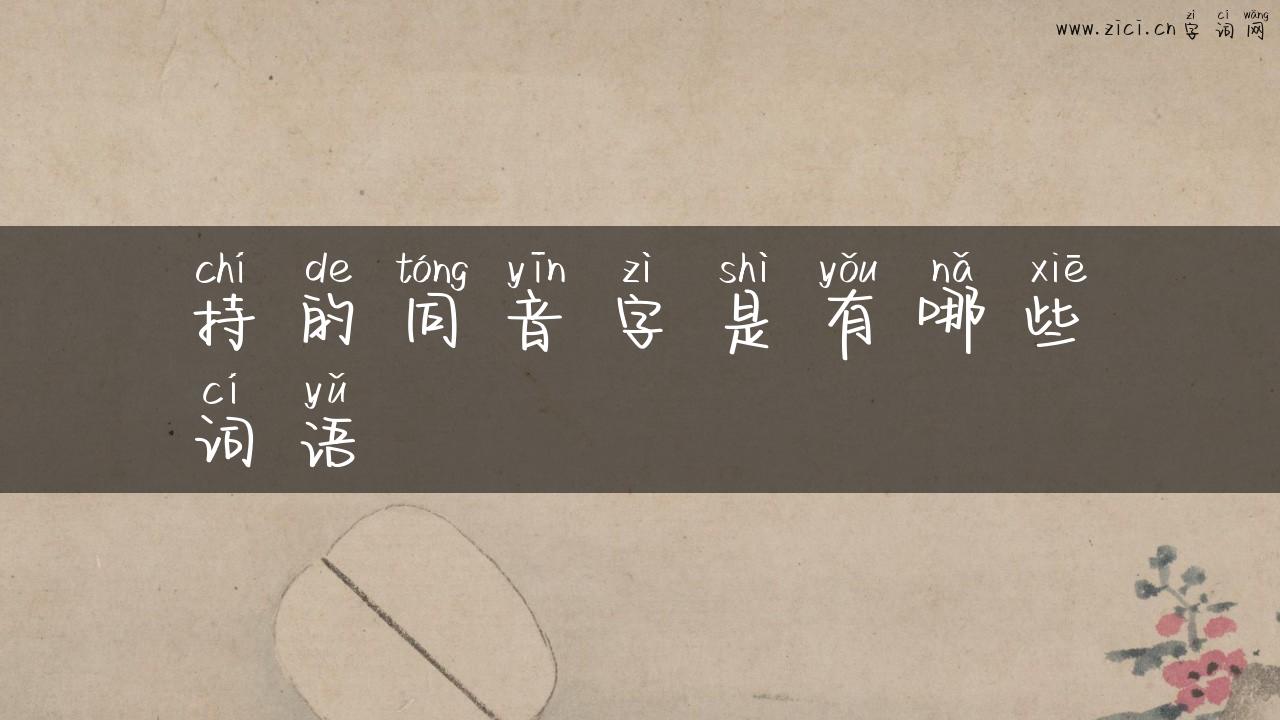 zì cí wǎng
www.zici.cn字词网
chí de tóng yīn zì shì yǒu nǎ xiē
持的同音字是有哪些
cí yǔ
词语